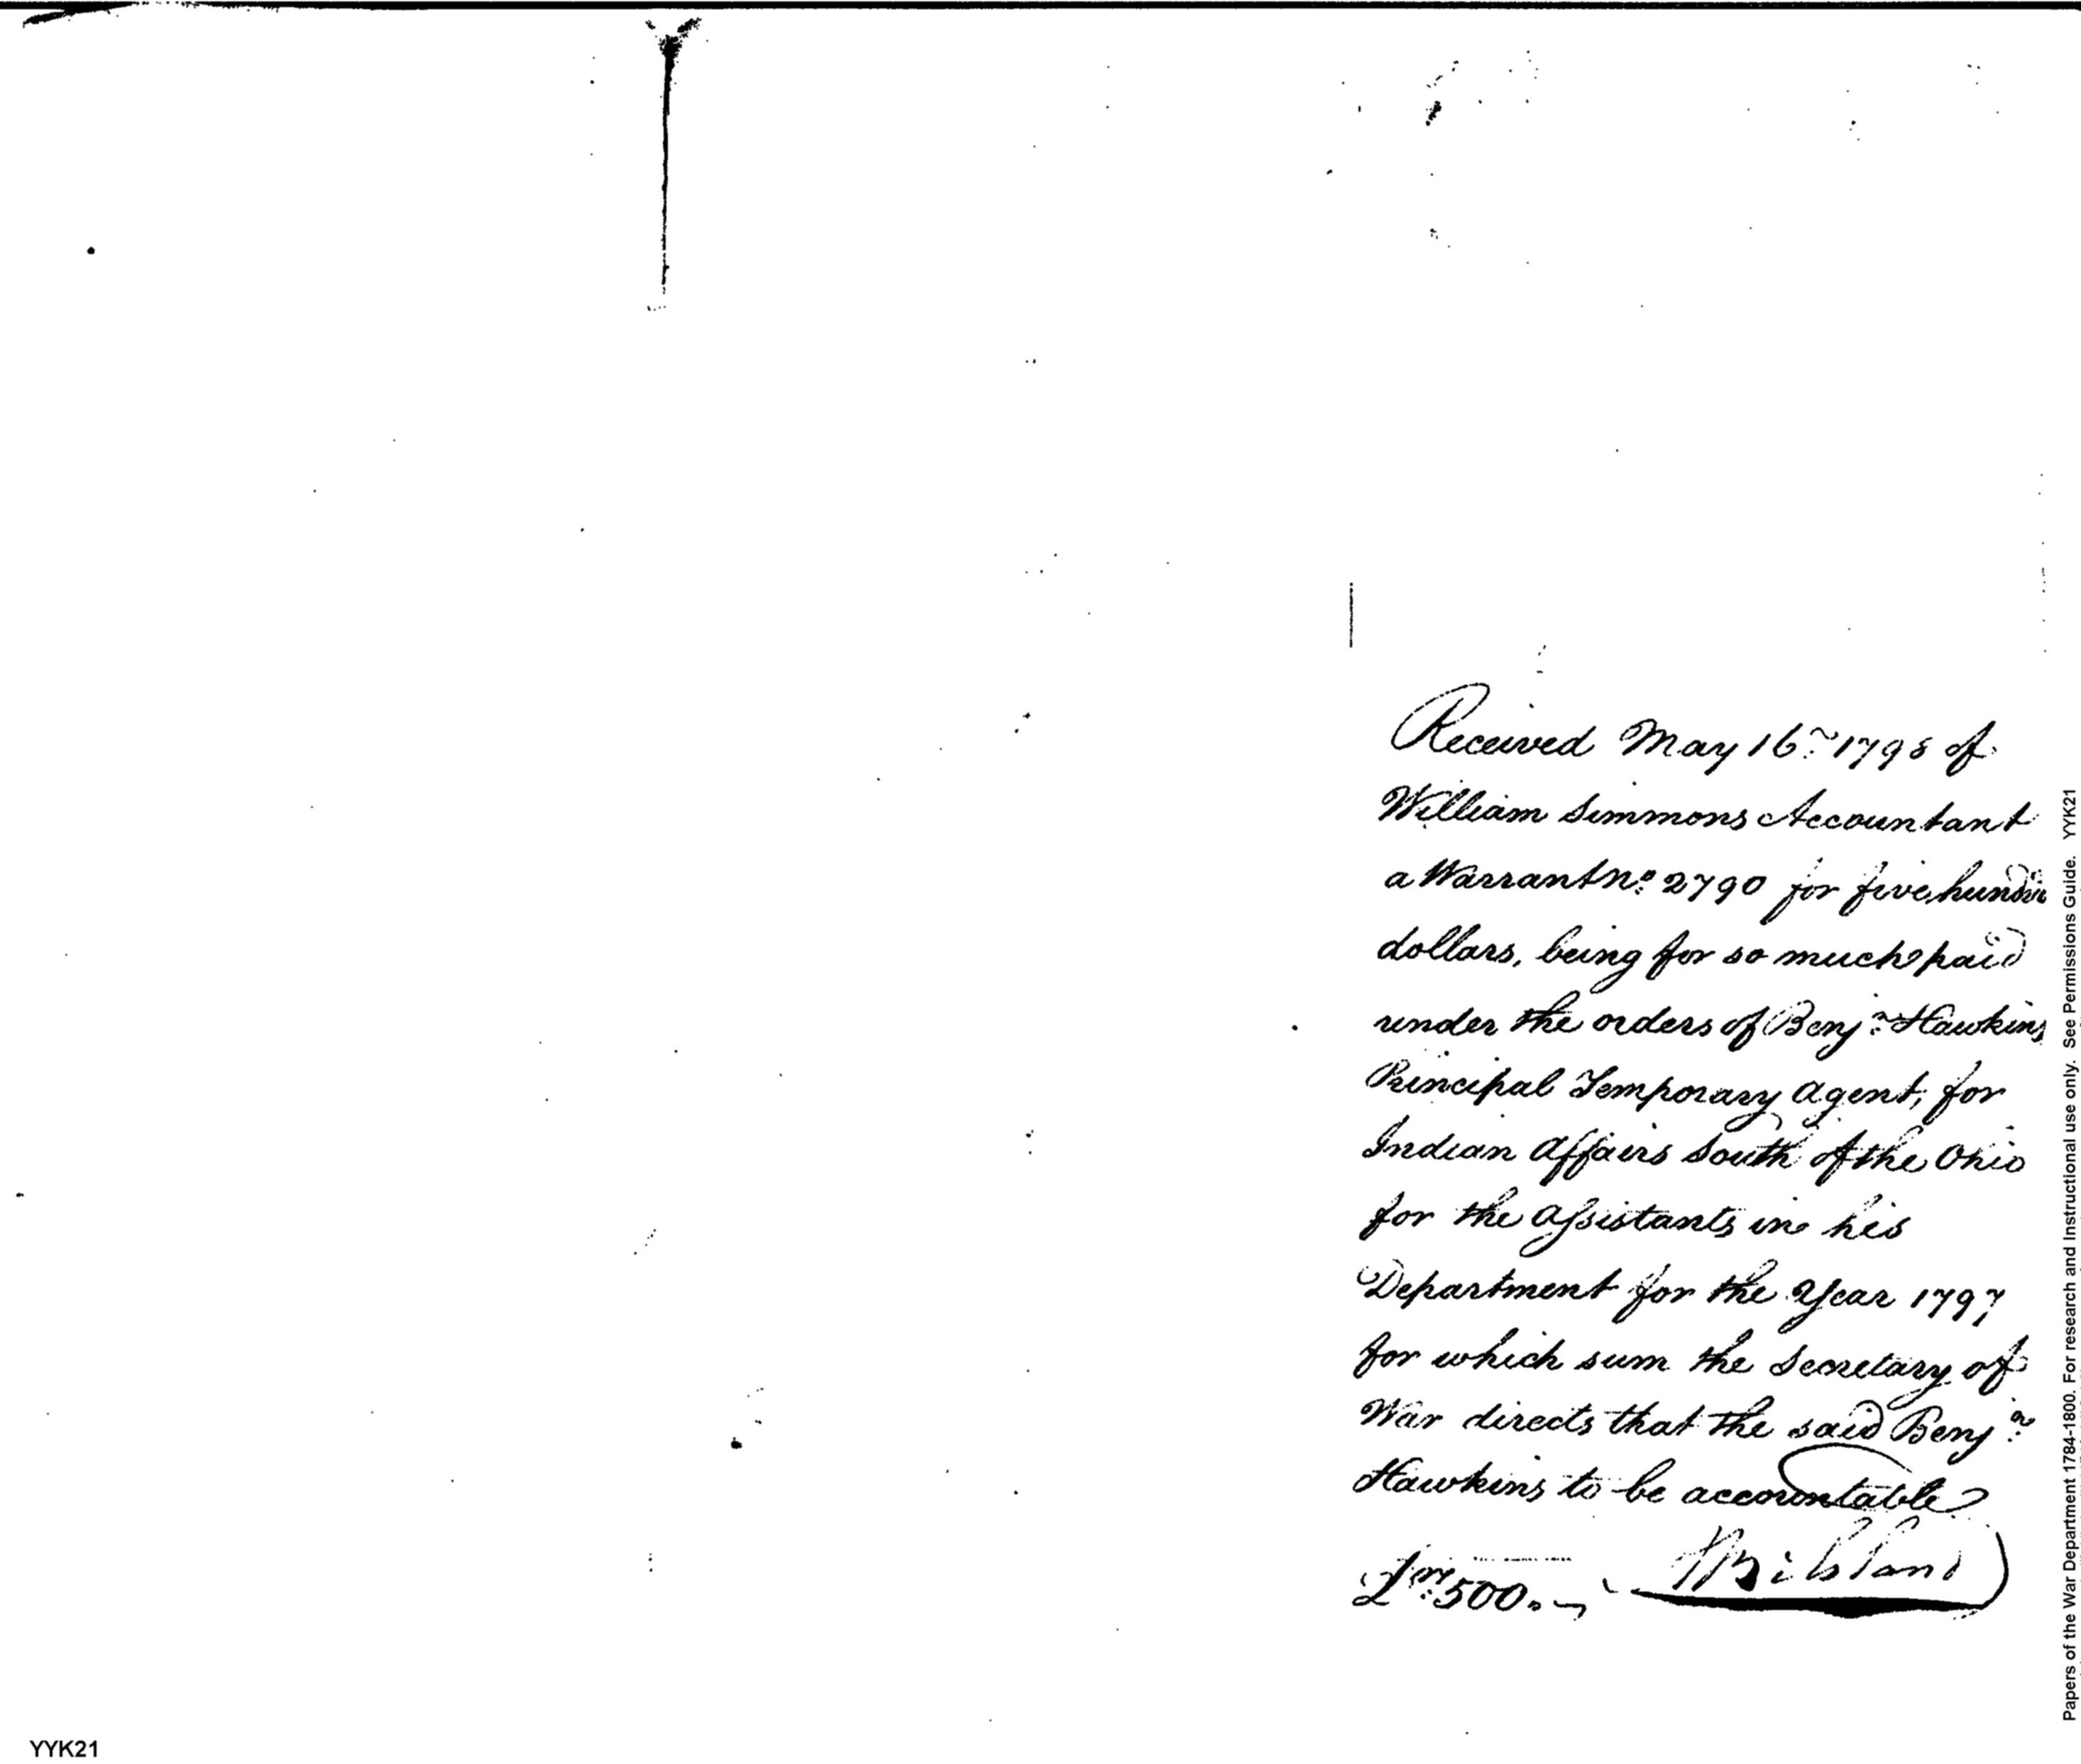 Received May 16th 1798 of
William Simmons Accountant
a Warrant No 2790 for five hundre
dollars, being for so much paid
under the orders of Benjn Hawkins
Principal Temporary Agent, for
Indian Affairs South of the Ohio
for the Assistants in his
Department for the Year 1797
for which sum the Secretary of
War directs that the said Benjn
Hawkins to be accountable
500
YYK21
Papers of the War Department 1784-1800. For research and Instructional use only. See Permissions Guide. YYK21